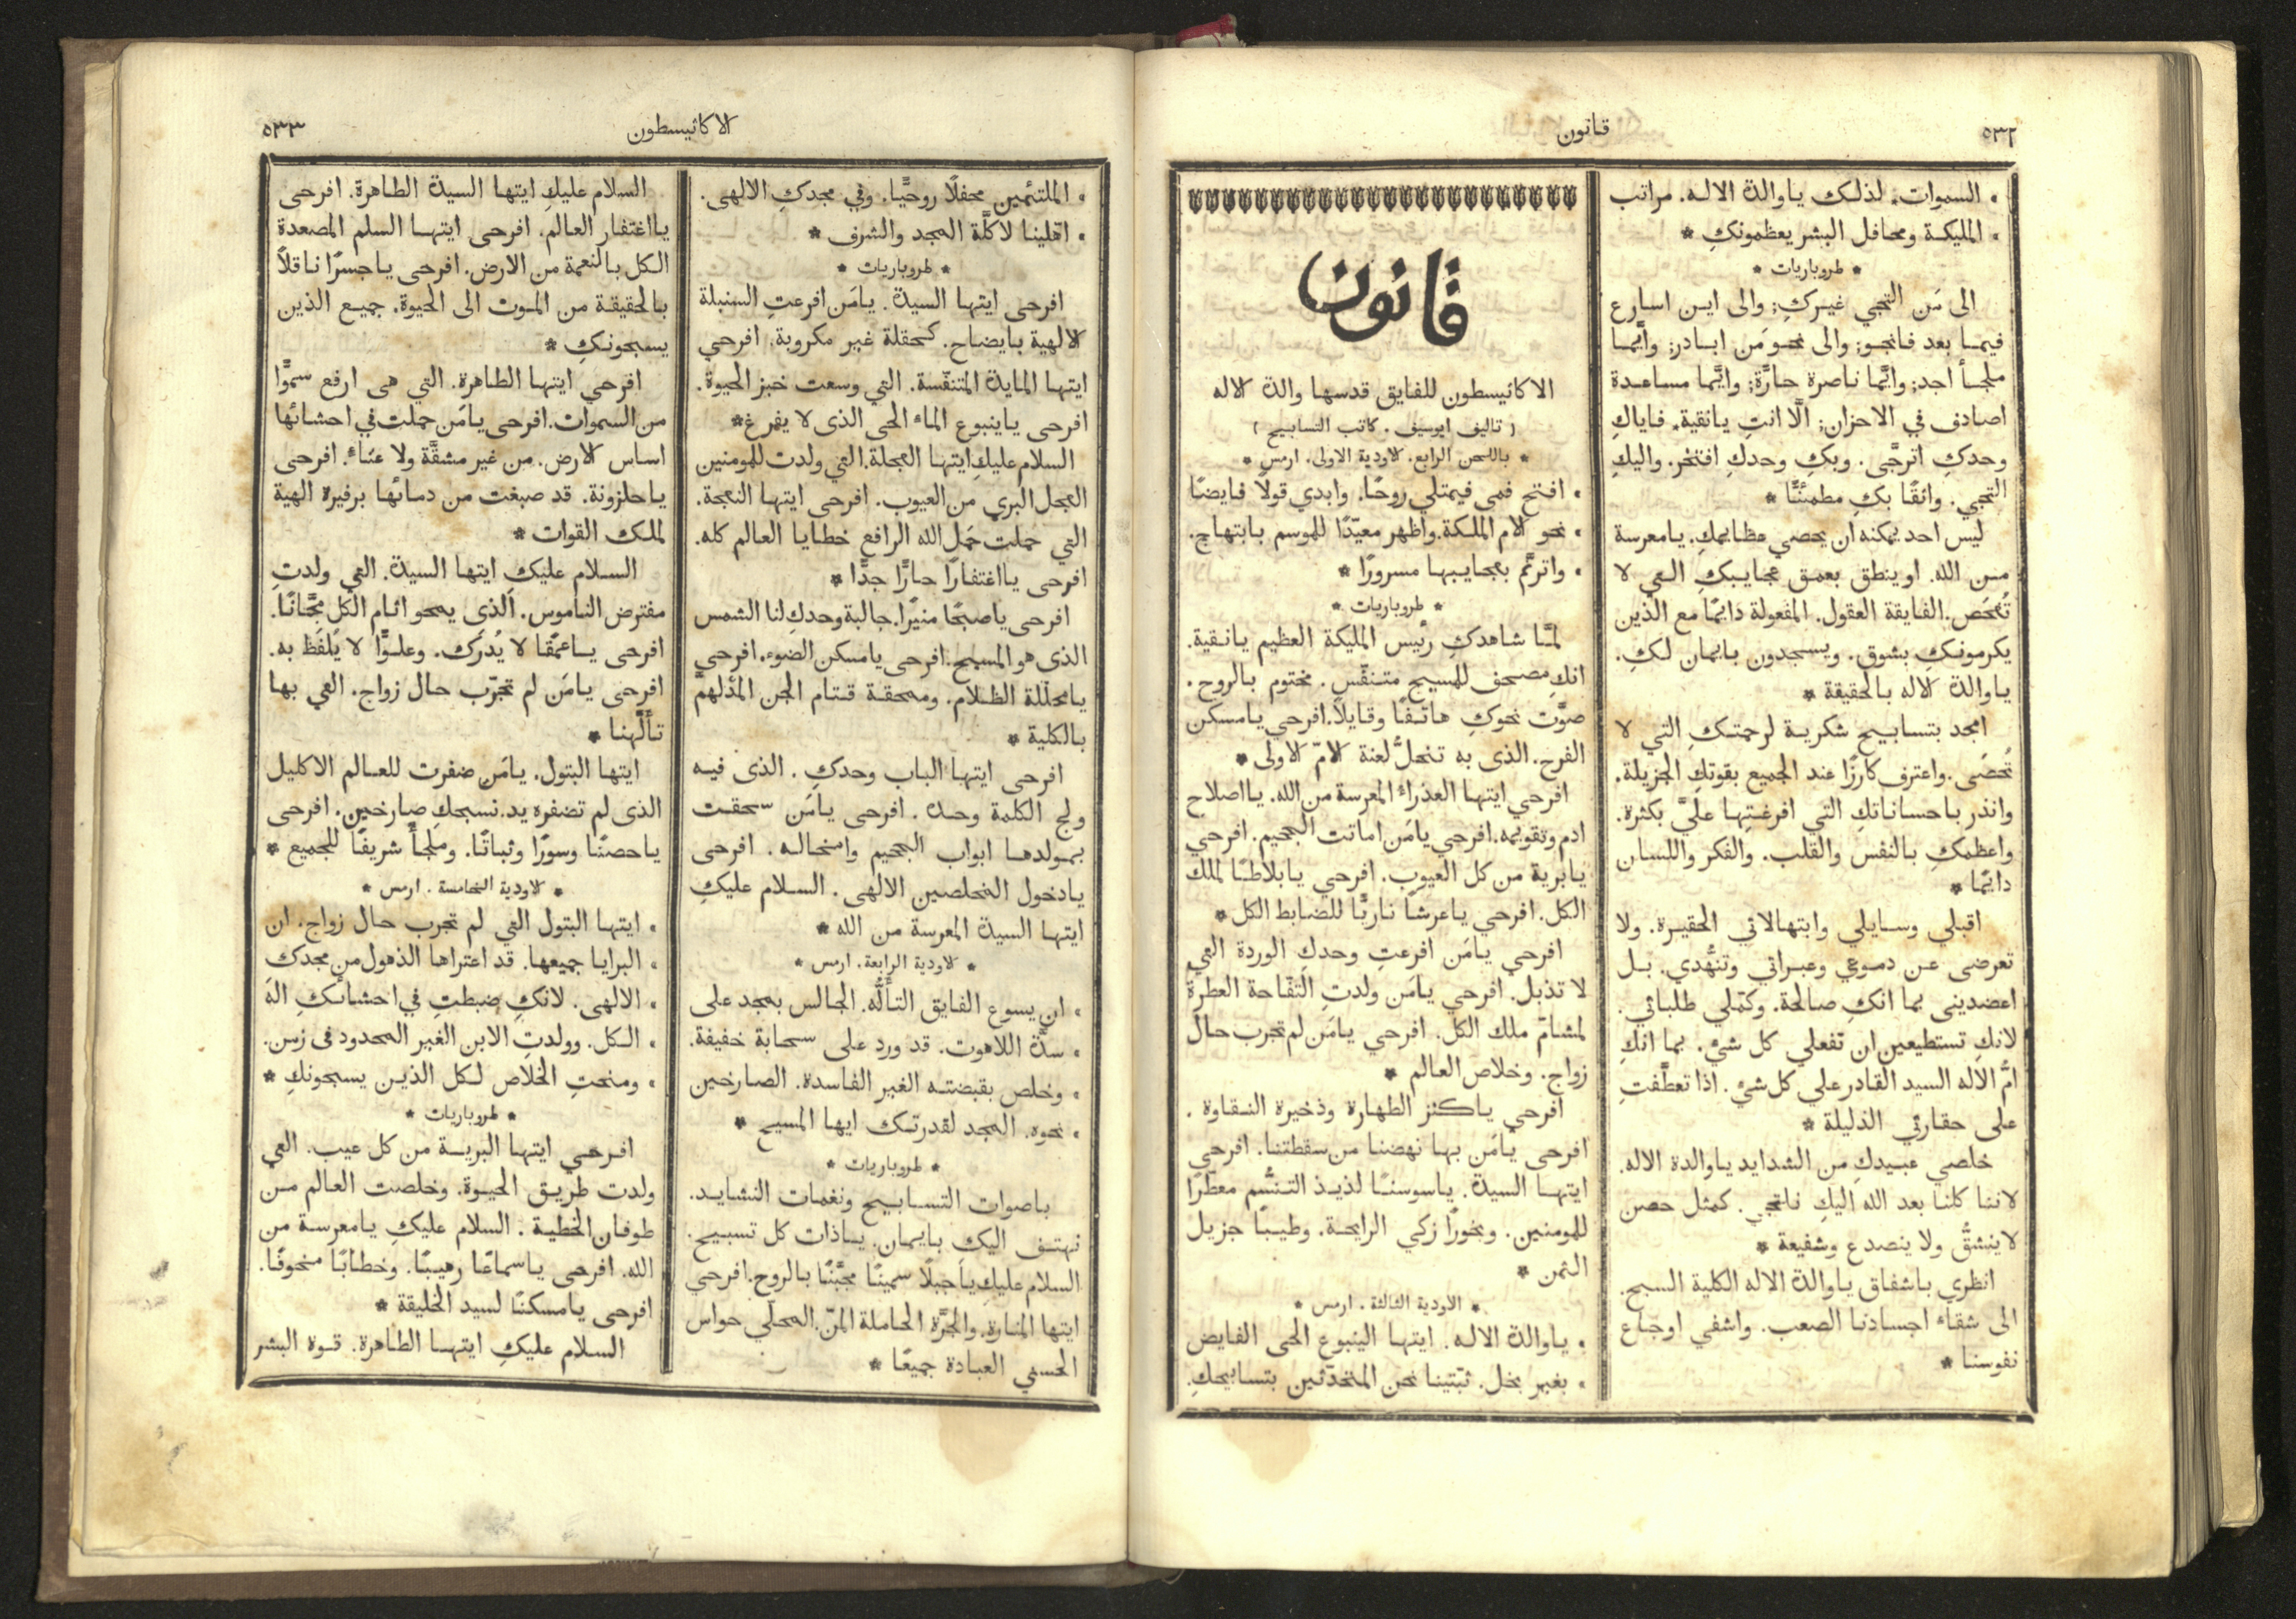 ٥٣٢
قانون
• السموات. لذلك ياوالدة الاله. مراتب
• المليكة ومحافل البشر يعظمونكِ *
* طروباريات *
الى مَن التجي غيركِ; والى اين اسارع
فيما بعد فانجو; والى نحو مَن ابادر; وايَّما
ملجأ اجد; وايَّما ناصرة حارَّة; وايَّما مساعدة
اصادف في الاحزان; الَّا انتِ يانقية. فاياكِ
وحدكِ اترجَّى. وبكِ وحدكِ افتخر. واليكِ
التجي. واثقًا بكِ مطمئنًّا *
ليس احد يمكنه ان يحصي عظايمكِ. يامعرسة
من الله. او ينطق بعمق عجايبكِ التي لا
تُفحَص. الفايقة العقول. المفعولة دايمًا مع الذين
يكرمونكِ بشوق. ويسجدون بايمان لكِ.
ياوالدة الاله بالحقيقة *
امجد بتسابيح شكرية لرحمتكِ التي لا
تُحصَى. واعترف كارزًا عند الجميع بقوتكِ الجزيلة.
وانذر باحساناتكِ التي افرغتِها عليَّ بكثرة.
واعظمكِ بالنفس والقلب. والفكر واللسان
دايمًا *
اقبلي وسايلي وابتهالاتي الحقيرة. ولا
تعرضى عن دموعي وعبراتي وتنهُّدي. بل
اعضدينى بما انكِ صالحة. وكمّلي طلباتي.
لانكِ تستطيعين ان تفعلي كل شيْ. بما انكِ
امُّ الاله السيد القادر علي كل شيْ. اذا تعطَّفتِ
على حقارتي الذليلة *
خلصي عبيدكِ من الشدايد ياوالدة الاله.
لاننا كلنا بعد الله اليكِ نلتجي. كمثل حصن
لاينشقُّ ولا ينصدع وشفيعة *
انظري باشفاق ياوالدة الاله الكلية السبح.
الى شقاء اجسادنا الصعب. واشفي اوجاع
نفوسنا *
قانون
الاكاثيسطون للفايق قدسها والدة الاله
( تاليف ايوسيف. كاتب التسابيح )
* باللحن الرابع. لاودية الاولى. ارمس *
• افتح فمى فيمتلي روحًا. وابدي قولًا فايضًا
• نحو الام الملكة. واظهر معيّدًا للموسم بابتهاج.
• واترنَّم بعجايبها مسرورًا *
* طروباريات *
لمَّا شاهدكِ رئيس المليكة العظيم يانقية.
انكِ مصحف للمسيح متنفّس. مختوم بالروح.
صوَّت نحوكِ هاتفًا وقايلًا. افرحي يامسكن
الفرح. الذى به تنحلُّ لعنة الامّ الاولى *
افرحي ايتها العذراء المعرسة من الله. يااصلاح
ادم وتقويمه. افرحي يامَن اماتت الجحيم. افرحي
يابرية من كل العيوب. افرحي يابلاطًا لملك
الكل. افرحي ياعرشًا ناريًّا للضابط الكل *
افرحي يامَن افرعتِ وحدكِ الوردة التي
لا تذبل. افرحي يامَن ولدتِ التفّاحة العطرة
لمشامّ ملك الكل. افرحي يامَن لم تجرب حال
زواج. وخلاص العالم *
افرحي ياكنز الطهارة وذخيرة النقاوة.
افرحى يامَن بها نهضنا من سقطتنا. افرحي
ايتها السيدة. ياسوسنًا لذيذ التنسُّم معطّرًا
للمومنين. وبخورًا زكي الرايحة. وطيبًا جزيل
الثمن *
* الاودية الثالثة. ارمس *
• ياوالدة الاله. ايتها الينبوع الحى الفايض
• بغير بخل. ثبّتينا نحن المتحدّثين بتسابيحكِ.
الاكاثيسطون
٥٣٣
• الملتئمين محفلًا روحيًّا. وفي مجدكِ الالهى.
• اهّلينا لاكلَّة المجد والشرف *
* طروباريات *
افرحى ايتها السيدة. يامَن افرعتِ السنبلة
الالهية بايضاح. كحقلة غير مكروبة. افرحي
ايتها المايدة المتنفّسة. التي وسعت خبز الحيوة.
افرحى ياينبوع الماء الحى الذى لا يفرغ *
السلام عليكِ ايتها العجلة. التي ولدت للمومنين
العجل البري من العيوب. افرحى ايتها النعجة.
التي حملت حَمَل الله الرافع خطايا العالم كله.
افرحى يااغتفارًا حارًّا جدًّا *
افرحى ياصبحًا منيرًا. جالبة وحدكِ لنا الشمس
الذى هو المسيح. افرحى يامسكن الضوء. افرحي
يامحلّلة الظلام. وممحقة قتام الجن المدلهمّ
بالكلية *
افرحى ايتها الباب وحدكِ. الذى فيه
ولج الكلمة وحده. افرحى يامَن سحقت
بمولدها ابواب الجحيم وامخاله. افرحى
يادخول المخلصين الالهى. السلام عليكِ
ايتها السيدة المعرسة من الله *
* لاودية الرابعة. ارمس *
• ان يسوع الفايق التألُّه. الجالس بمجد على
• سدَّة اللاهوت. قد ورد على سحابة خفيفة.
• وخلص بقبضته الغير الفاسدة. الصارخين
• نحوه. المجد لقدرتك ايها المسيح *
* طروباريات *
باصوات التسابيح ونغمات النشايد.
نهتف اليك بايمان. ياذات كل تسبيح.
السلام عليكِ ياجبلًا سمينًا مجبَّنًا بالروح. افرحي
ايتها المنارة. والجرَّة الحاملة المنّ. المحلّي حواس
الحسني العبادة جميعًا *
السلام عليكِ ايتها السيدة الطاهرة. افرحى
يااغتفار العالم. افرحى ايتها السلم المصعدة
الكل بالنعمة من الارض. افرحى ياجسرًا ناقلًا
بالحقيقة من الموت الى الحيوة. جميع الذين
يسبحونكِ *
افرحي ايتها الطاهرة. التي هى ارفع سموًّا
من السموات. افرحى يامَن حملت في احشائها
اساس الارض. من غير مشقَّة ولا عناءٍ. افرحى
ياحلزونة. قد صبغت من دمائها برفيرة الهية
لملك القوات *
السلام عليكِ ايتها السيدة. التي ولدتِ
مفترض الناموس. الذى يمحو اثام الكل مجَّانًا.
افرحى ياعمقًا لا يُدرَك. وعلوًّا لا يُلفَظ به.
افرحى يامَن لم تجرّب حال زواج. التي بها
تألَّهنا *
ايتها البتول. يامَن ضفرت للعالم الاكليل
الذى لم تضفره يد. نسبحكِ صارخين. افرحى
ياحصنًا وسورًا وثباتًا. وملجأً شريفًا للجميع *
* لاودية الخامسة. ارمس *
• ايتها البتول التي لم تجرب حال زواج. ان
• البرايا جميعها. قد اعتراها الذهول من مجدك
• الالهى. لانكِ ضبطتِ في احشائكِ الهَ
• الكل. وولدتِ الابن الغير المحدود فى زمن.
• ومنحتِ الخلاص لكل الذين يسبحونكِ *
* طروباريات *
افرحي ايتها البرية من كل عيب. التي
ولدت طريق الحيوة. وخلصت العالم من
طوفان الخطية. السلام عليكِ يامعرسة من
الله. افرحى ياسماعًا رهيبًا. وخطابًا مخوفًا.
افرحى يامسكنًا لسيد الخليقة *
السلام عليكِ ايتها الطاهرة. قوة البشر